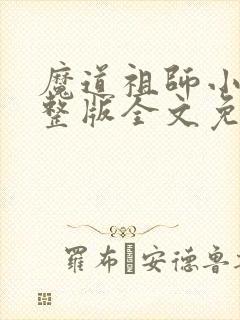 魔道祖師小
整版全文免
羅布 安德魯